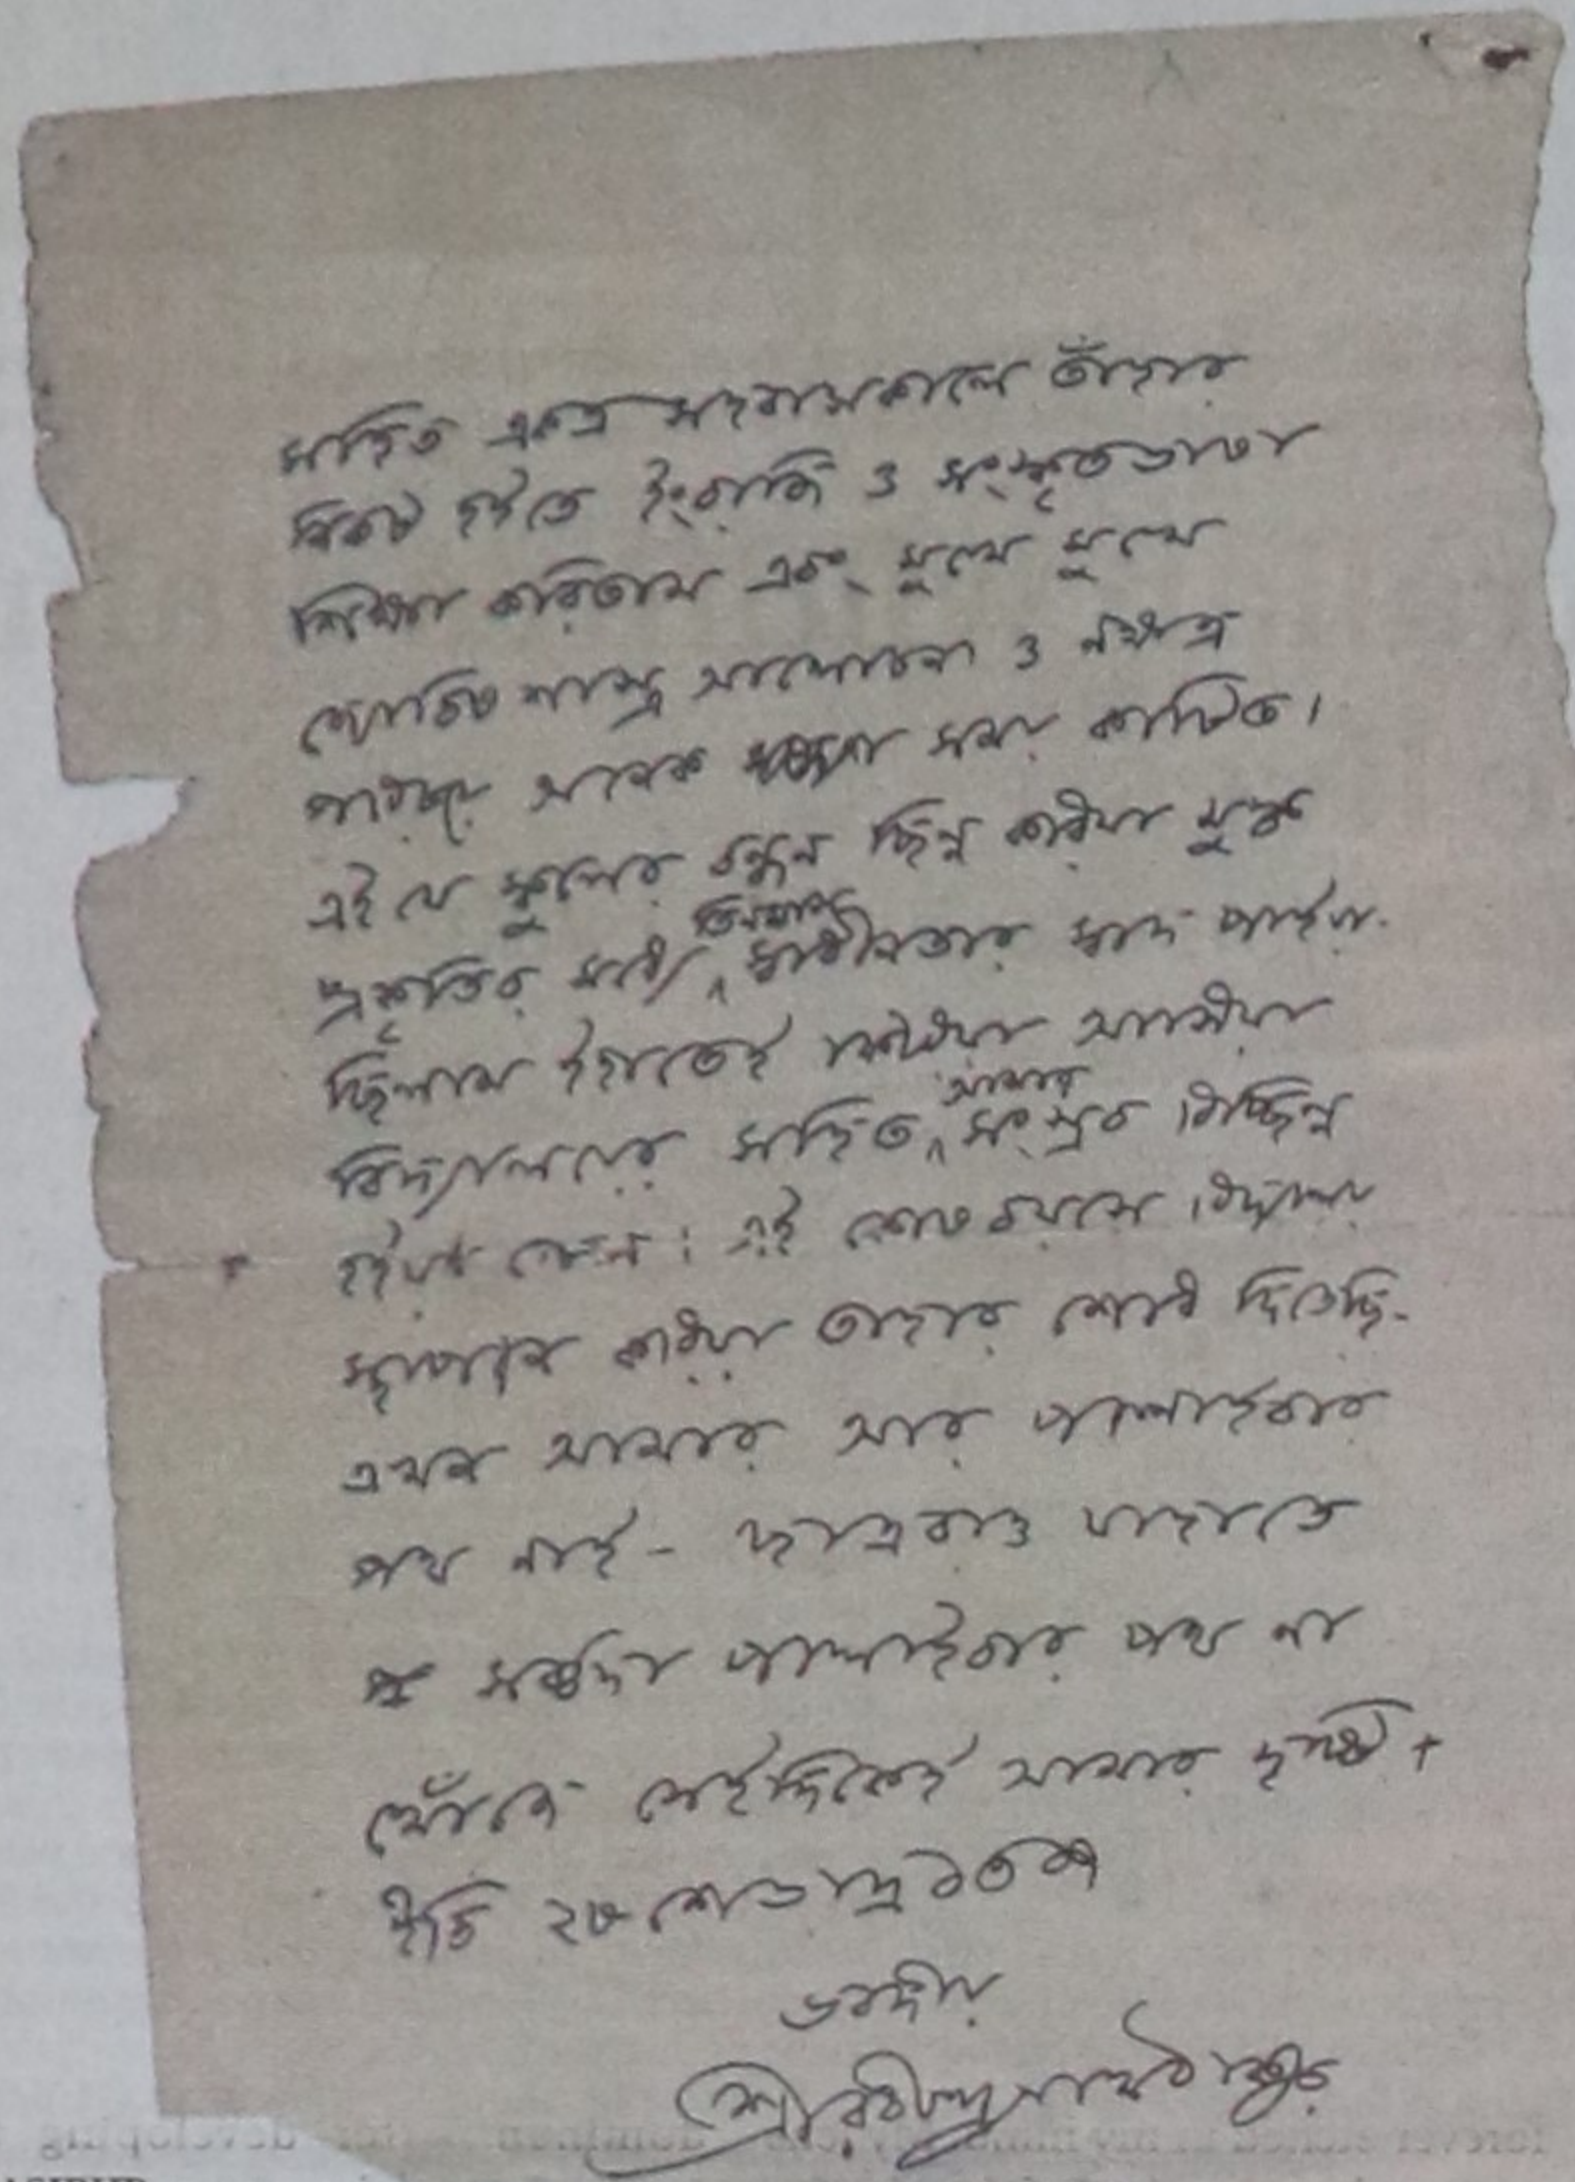 সহিত একত্র সহবাসকালে তাঁহার
নিকট হইতে ইংরাজি ও সংস্কৃতভাষা
শিক্ষা করিতাম এবং মুখে মুখে
জ্যোতিষশাস্ত্র আলোচনা ও নক্ষত্র
পরিচয়ে অনেক সময় কাটিত।
এই যে স্কুলের বন্ধন ছিন্ন করিয়া মুক্ত
প্রকৃতির মধ্যে তিনমাস স্বাধীনতার স্বাদ পাইয়া-
ছিলাম ইহাতেই ফিরিয়া আসিয়া
বিদ্যালয়ের সহিত আমার সংস্রব বিচ্ছিন্ন
হইয়া গেল। এই শেষ বয়সে বিদ্যালয়
স্থাপন করিয়া তাহার শোধ দিতেছি-
এখন আমার আর পালাইবার
পথ নাই - ছাত্ররাও যাহাতে
সর্ব্বদা পালাইবার পথ না
খোঁজে সেইদিকেই আমার দৃষ্টি।
ইতি ২৮শে ভাদ্র ১৩১৭
ভবদীয়
শ্রীরবীন্দ্রনাথ ঠাকুর